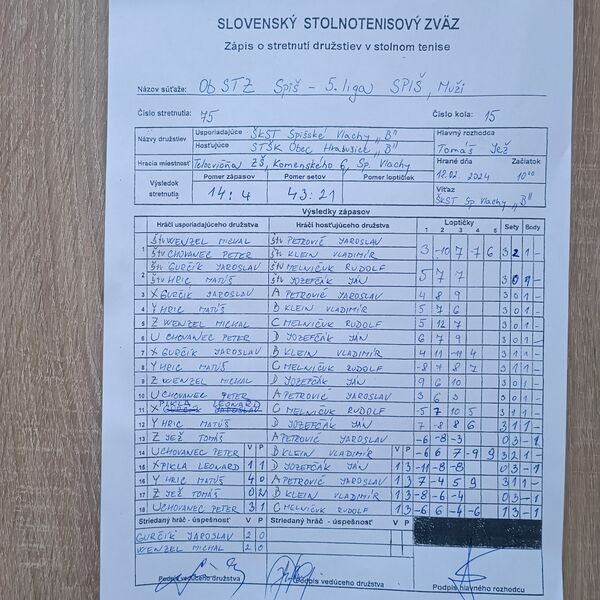 SLOVENSKÝ STOLNOTENISOVÝ ZVÄZ
Zápis o stretnutí družstiev v stolnom tenise
Názov súťaže: ObSTZ Spiš - 5. liga SPIŠ, Muži
Číslo stretnutia: 75 Číslo kola: 15
Názvy družstiev Usporiadajúce ŠKST Spišské Vlachy "B" Hlavný rozhodca
Hosťujúce STŠK Obec Hrabušice "B" Tomáš Jež
Hracia miestnosť Telocvičňa ZŠ, Komenského 6, Sp. Vlachy Hrané dňa Začiatok
Výsledok stretnutia Pomer zápasov Pomer setov Pomer loptičiek 18.02.2024 10⁰⁰
14:4 43:21 Víťaz
ŠKST Sp Vlachy "B"
Výsledky zápasov
Hráči usporiadajúceho družstva Hráči hosťujúceho družstva Loptičky Sety Body
1 2 3 4 5
1 Štv WENZEL MICHAL Štv PETROVIČ JAROSLAV 3 -10 7 -7 6 3 2 1 -
Štv CHOVANEC PETER Štv KLEIN VLADIMÍR
2 Štv GURČÍK JAROSLAV Štv MELNIČUK RUDOLF 5 7 7 3 0 1 -
Štv HRIC MATÚŠ Štv JOZEFČÁK JÁN
3 X GURČÍK JAROSLAV A PETROVIČ JAROSLAV 4 8 9 3 0 1 -
4 Y HRIC MATÚŠ B KLEIN VLADIMÍR 5 7 6 3 0 1 -
5 Z WENZEL MICHAL C MELNIČUK RUDOLF 5 12 7 3 0 1 -
6 U CHOVANEC PETER D JOZEFČÁK JÁN 6 7 9 3 0 1 -
7 X GURČÍK JAROSLAV B KLEIN VLADIMÍR 4 11 -11 4 3 1 1 -
8 Y HRIC MATÚŠ C MELNIČUK RUDOLF -8 7 8 7 3 1 1 -
9 Z WENZEL MICHAL D JOZEFČÁK JÁN 9 6 10 3 0 1 -
10 U CHOVANEC PETER A PETROVIČ JAROSLAV 3 6 3 3 0 1 -
11 X PIKLA LEONARD C MELNIČUK RUDOLF 5 7 10 5 3 1 1 -
12 Y HRIC MATÚŠ D JOZEFČÁK JÁN 7 -8 8 6 3 1 1 -
13 Z JEŽ TOMÁŠ A PETROVIČ JAROSLAV -6 -8 -3 0 3 - 1
14 U CHOVANEC PETER V P B KLEIN VLADIMÍR V P -6 6 7 -9 9 3 2 1 -
15 X PIKLA LEONARD 1 1 D JOZEFČÁK JÁN 1 3 -11 -8 -8 0 3 - 1
16 Y HRIC MATÚŠ 4 0 A PETROVIČ JAROSLAV 1 3 7 -4 5 9 3 1 1 -
17 Z JEŽ TOMÁŠ 0 2 B KLEIN VLADIMÍR 1 3 -8 -6 -4 0 3 - 1
18 U CHOVANEC PETER 3 1 C MELNIČUK RUDOLF 1 3 -6 6 -4 -6 1 3 - 1
Striedaný hráč - úspešnosť V P Striedaný hráč - úspešnosť V P
GURČÍK JAROSLAV 2 0
WENZEL MICHAL 2 0
Podpis vedúceho družstva Podpis vedúceho družstva Podpis hlavného rozhodcu